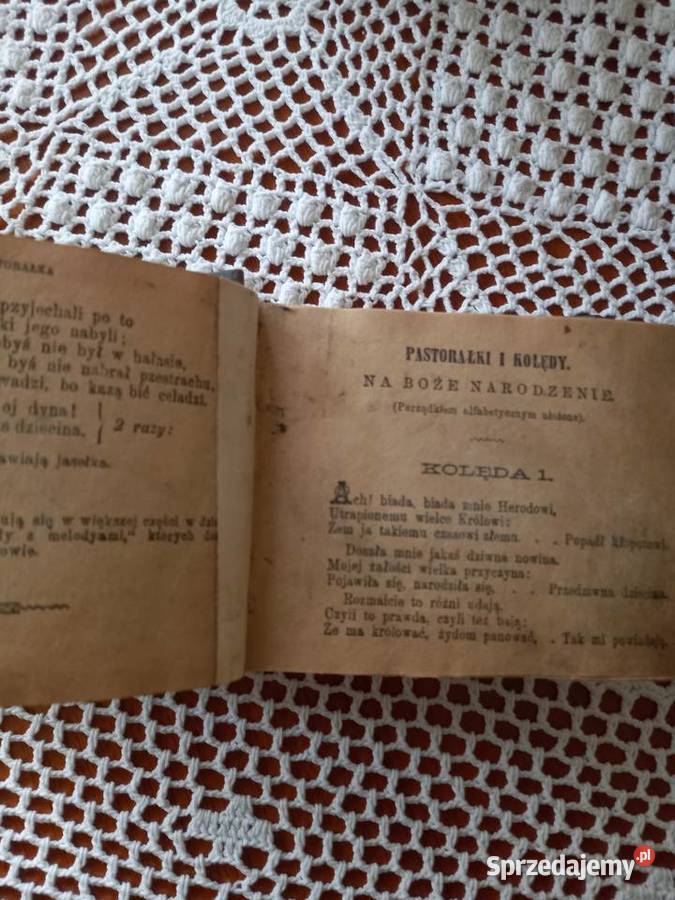 TORAŁKA
przyjechali po to
ki jego nabyli;
byś nie był w hałasie,
byś nie nabrał przestrachu,
wadzi, bo każą bić czeladzi.
oj dyna!
a dziecina. } 2 razy:
awiają jasełka.
ują się w większej części w dzie
dy z melodyami," których do
owie.
PASTORAŁKI I KOLĘDY.
NA BOŻE NARODZENIE.
(Porządkiem alfabetycznym ułożone).
KOLĘDA 1.
Ach! biada, biada mnie Herodowi,
Utrapionemu wielce Królowi:
Żem ja takiemu czasowi złemu. . . Popadł kłopotowi.
Doszła mnie jakaś dziwna nowina.
Mojej żałości wielka przyczyna:
Pojawiła się, narodziła się, . . Przedziwna dziecina.
Rozmaicie to różni udają.
Czyli to prawda, czyli też bają:
Że ma królować, żydom panować, . Tak mi powiadają.
Sprzedajemy.pl